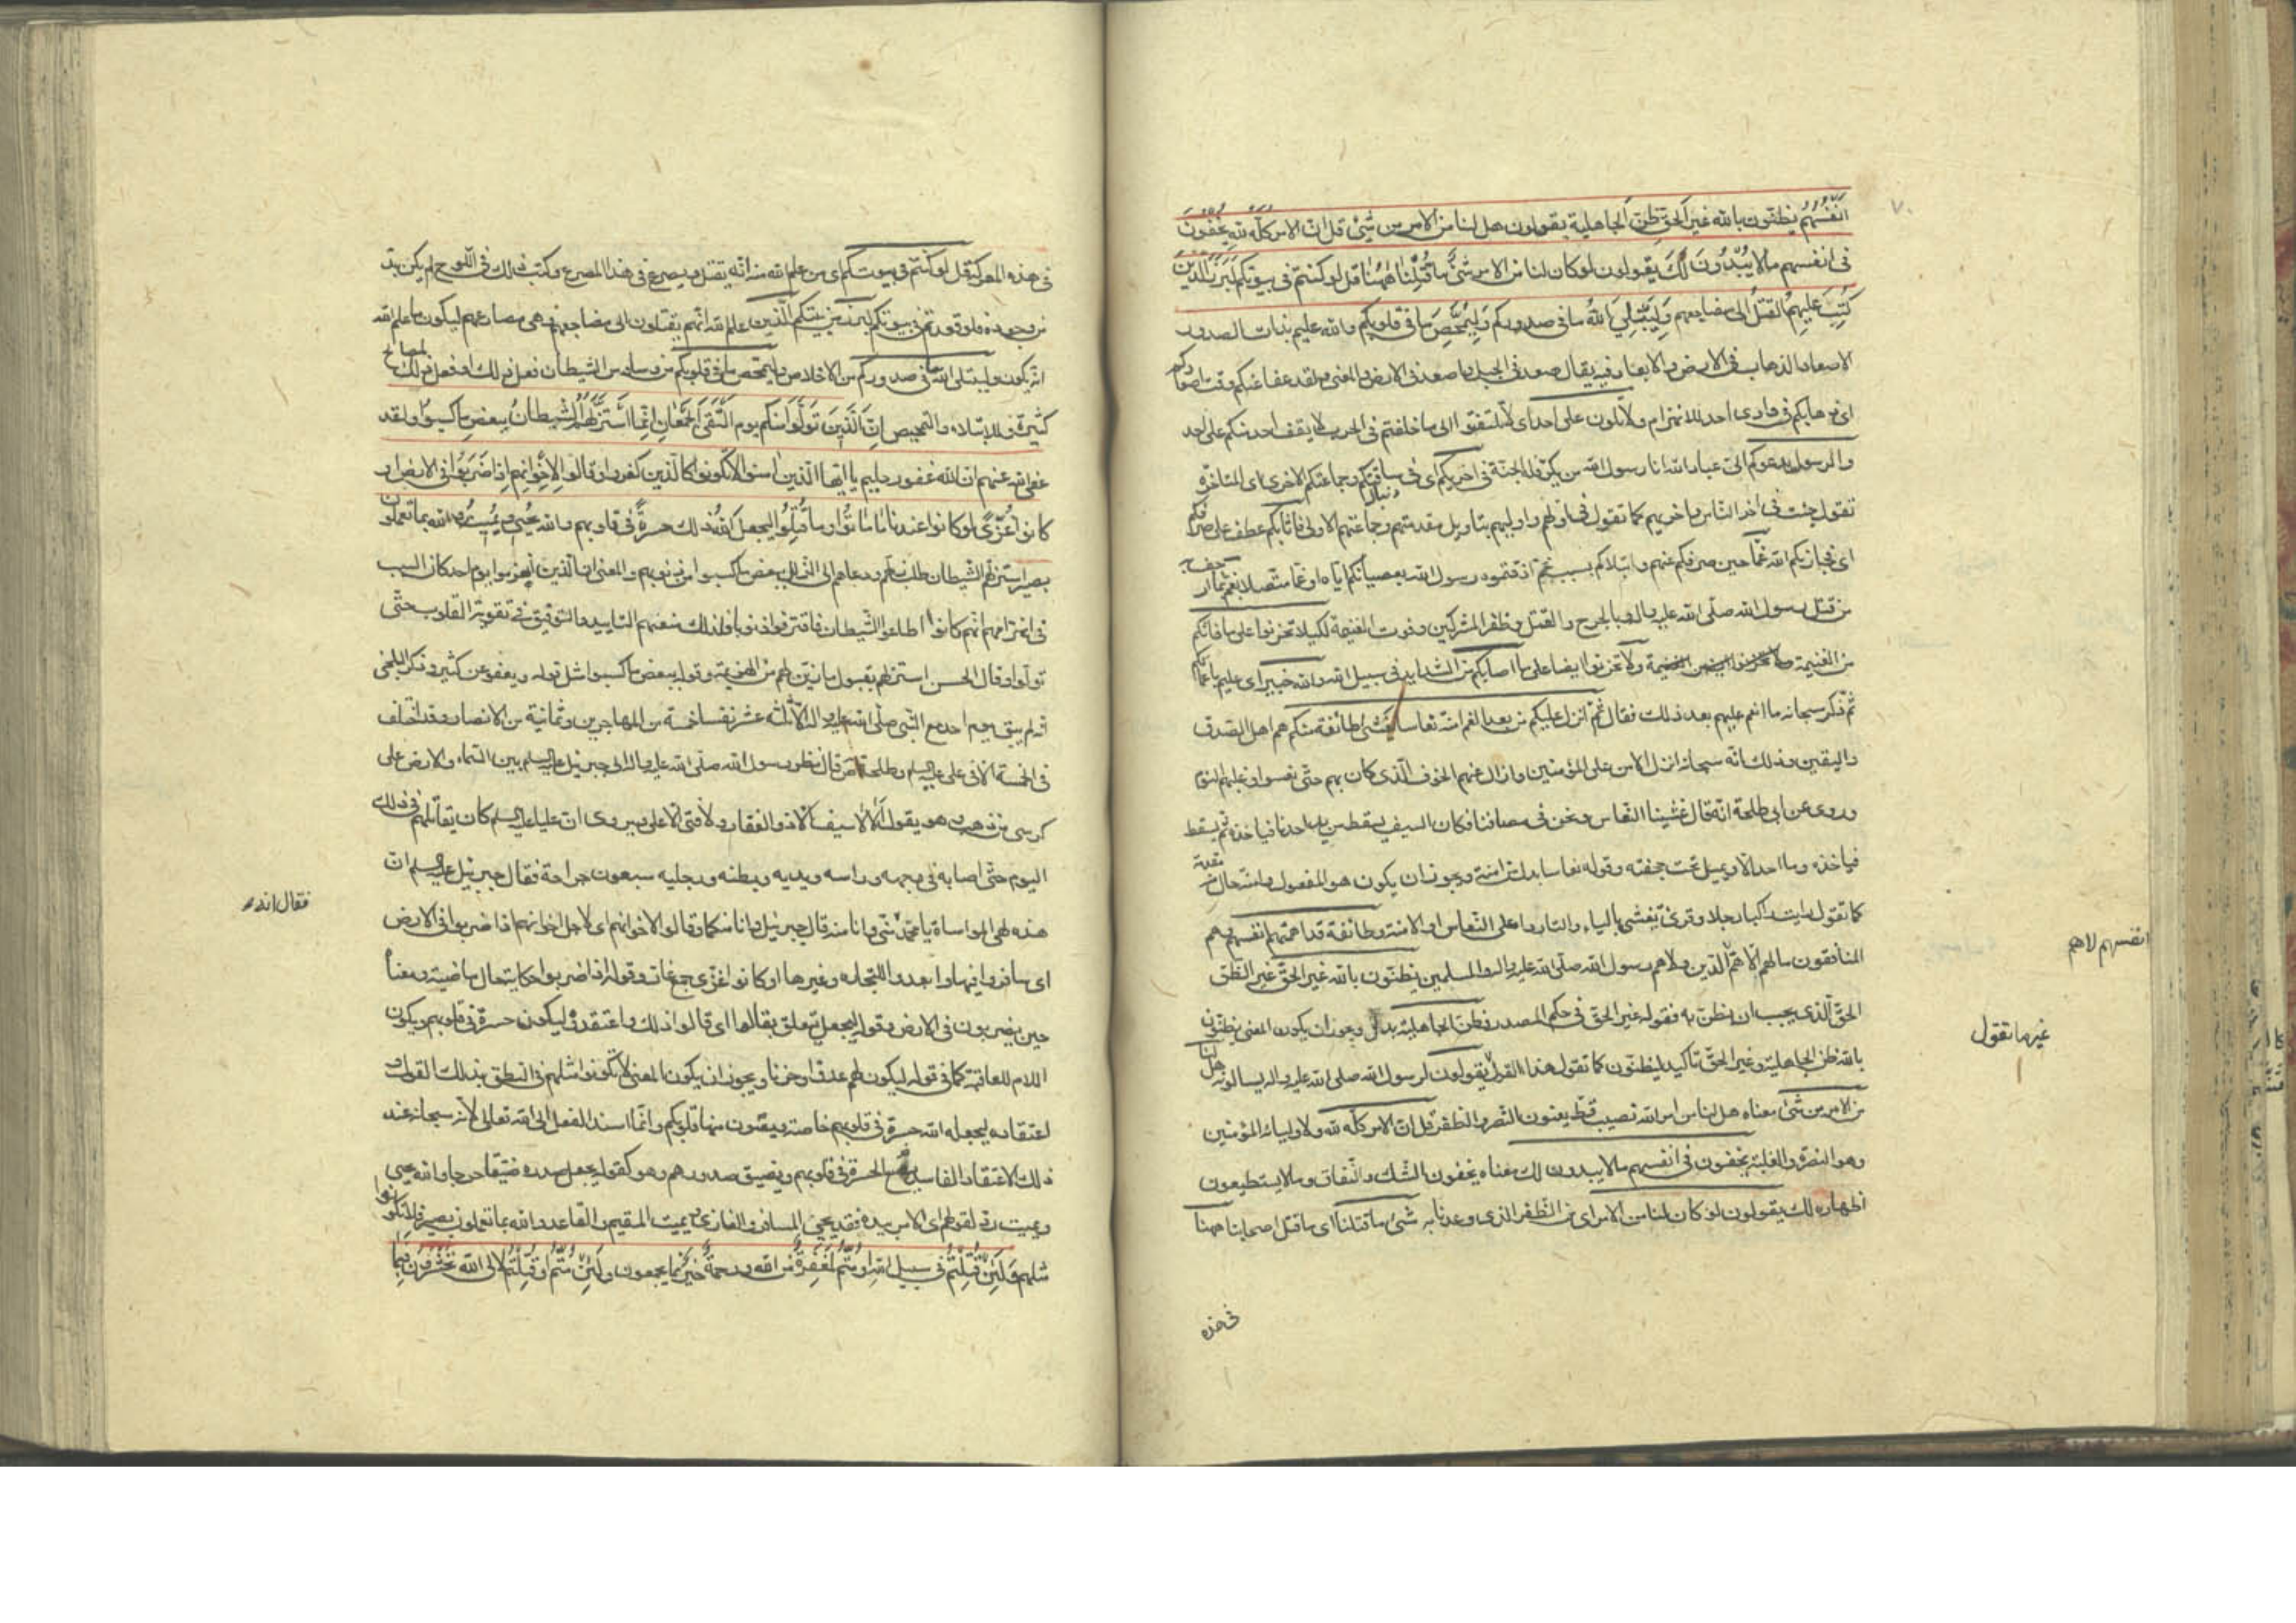 ٧٠
انفسهم يظنّون بالله غير الحقّ ظنّ الجاهلية يقولون هل لنا من الامر من شئ قل انّ الامر كلّه لله يخفون
فى انفسهم مالا يبدون لك يقولون لو كان لنا من الامر شئ ما قتلنا ههنا قل لو كنتم فى بيوتكم لبرز الّذين
كتب عليهم القتل الى مضاجعهم وليبتلى الله ما فى صدوركم وليمحّص ما فى قلوبكم والله عليم بذات الصدور
الاصعاد الذهاب فى الارض والابعاد فيه يقال صعد فى الجبل واصعد فى الارض والمعنى ولقد عفا عنكم وقت اصعادكم
اى ذهابكم فى وادى احد للانهزام ولا تلون على احد اى لا تلتفتوا الى ما خلفتم فى الحرب لا يقف احد منكم على احد
والرسول يدعوكم الىّ عباد الله انا رسول الله من يكرّ فله الجنّة فى اخريكم اى فى ساقتكم وجماعتكم الاخرى اى المتاخّرة
تقول جئت فى آخر النّاس واخريهم كما تقول فى اوّلهم واوليهم بتاويل مقدمتهم وجماعتهم الاولى فاثابكم عطف على صرفكم
اى فجازيكم الله غمّا حين صرفكم عنهم وابتلاكم بسبب غمّ اذقتموه رسول الله بعصيانكم ايّاه او غمّا متّصلا بغمّ
من قتل رسول الله صلّى الله عليه واله والجرح والقتل وظفر المشركين وفوت الغنيمة لكيلا تحزنوا على ما فاتكم
من الغنيمة ولا تحزنوا ايضا على ما اصابكم من الشدايد فى سبيل الله والله خبير اى عليم باعمالكم
ثمّ ذكر سبحانه ما انعم عليهم بعد ذلك فقال ثمّ انزل عليكم من بعد الغمّ امنة نعاسا يغشى طائفة منكم هم اهل الصّدق
واليقين وذلك انّه سبحانه انزل الامن على المؤمنين وازال عنهم الخوف الّذى كان بهم حتّى نعسوا وغلبهم النوم
وروى عن ابى طلحة انّه قال غشينا النعاس ونحن فى مصافنا فكان السيف يسقط من يد احدنا فياخذه ثم يسقط
فياخذه وما احد الّا ويميل تحت جحفته وقوله نعاسا بدل من امنة ويجوز ان يكون هو المفعول وامنة حال منه مقدمة
كما تقول رايت راكبا رجلا وقرئ يغشى بالياء والتاء ردا على النّعاس او الامنة وطائفة قد اهمّتهم انفسهم وهم
المنافقون ما لهم الّا همّ الدّين ولا هم رسول الله صلّى الله عليه واله والمسلمين يظنّون بالله غير الحقّ غير الظنّ
الحقّ الّذى يجب ان يظنّ به فقوله غير الحقّ فى حكم المصدر وظنّ الجاهلية بدل ويجوز ان يكون المعنى يظنّون
بالله ظنّ الجاهلية وغير الحقّ تاكيد ليظنّون كما تقول هذا القول يقولون لرسول الله صلى الله عليه واله يسالونه هل لنا
من الامر من شئ معناه هل لنا من امر الله نصيب قطّ يعنون النّصر والظفر قل انّ الامر كلّه لله ولاوليائه المؤمنين
وهو النصرة والغلبة يخفون فى انفسهم مالا يبدون لك معناه يخفون الشّك والنّفاق وما لا يستطيعون
اظهاره لك يقولون لو كان لنا من الامر اى من الظّفر الذى وعدنا به شئ ما قتلنا اى ما قتل اصحابنا ههنا
فى هذه
انفسهم لا هم
غير ما تقول
فى هذه المعركة قل لو كنتم فى بيوتكم اى من علم الله منه انّه يقتل ويصرع فى هذا المصرع وكتب ذلك فى اللّوح لم يكن بدّ
من وجوده فلو قعدتم فى بيوتكم لبرز من بينكم الّذين علم الله انّهم يقتلون الى مضاجعهم وهى مصارعهم ليكون ما علم الله
انّه يكون وليبتلى الله ما فى صدوركم من الاخلاص وليمحّص ما فى قلوبكم من وساوس الشيطان فعل ذلك او فعل ذلك لمصالح
كثيرة وللابتلاء والتّمحيص انّ الّذين تولّوا منكم يوم التقى الجمعان انّما استزلّهم الشيطان ببعض ما كسبوا ولقد
عفى الله عنهم انّ الله غفور حليم يا ايّها الّذين امنوا لا تكونوا كالّذين كفروا وقالوا لاخوانهم اذا ضربوا فى الارض او
كانوا غزّى لو كانوا عندنا ما ماتوا وما قتلوا ليجعل الله ذلك حسرة فى قلوبهم والله يحيى ويميت والله بما تعملون
بصير استزلّهم الشّيطان طلب زلّتهم ودعاهم الى الزلل ببعض ما كسبوا من ذنوبهم والمعنى ان الّذين انهزموا يوم احد كان السبب
فى انهزامهم انّهم كانوا اطاعوا الشّيطان فاقترفوا ذنوبا فلذلك منعتهم التاييد والتوفيق فى تقوية القلوب حتّى
تولّوا وقال الحسن استزلّهم بقبول ما زيّن لهم من الهزيمة وقوله ببعض ما كسبوا مثل قوله ويعفو عن كثير وذكر البلخى
انّه لم يبق يوم احد مع النّبى صلّى الله عليه واله الّا ثلثة عشر نفسا خمسة من المهاجرين وثمانية من الانصار وقد اختلف
فى الخمسة الّا فى على عليه السلم وطلحة قال نظر رسول الله صلّى الله عليه واله الى جبرئيل عليه السلم بين السّماء والارض على
كرسى من ذهب وهو يقول لا سيف الّا ذو الفقار ولا فتى الّا على وروى انّ عليا عليه السلم كان يقاتلهم فى ذلك
اليوم حتّى اصابه فى وجهه وراسه ويديه وبطنه ورجليه سبعون جراحة فقال جبرئيل عليه السلم انّ
هذه لهى المواساة يا محمّد منّى وانا منه قال جبرئيل وانا منكما وقالوا لاخوانهم اى لاجل اخوانهم اذا ضربوا فى الارض
اى سافروا فيها وابعدوا للتجارة وغيرها او كانوا غزّى جمع غاز وقوله اذا ضربوا حكاية حال ماضية ومعناه
حين يضربون فى الارض وقوله ليجعل يتعلق بقالوا اى قالوا ذلك واعتقدوه ليكون حسرة فى قلوبهم ويكون
اللام للعاقبة كما فى قوله ليكون لهم عدوّا وحزنا ويجوز ان يكون المعنى لا تكونوا مثلهم فى النطق بذلك القول و
اعتقاده ليجعله الله حسرة فى قلوبهم خاصة ويصون منها قلوبكم وانّما اسند الفعل الى الله تعالى لانّه سبحانه عند
ذلك الاعتقاد الفاسد يضع الحسرة فى قلوبهم ويضيق صدورهم وهو كقوله يجعل صدره ضيّقا حرجا والله يحيى
ويميت ردّ لقولهم اى الامر بيده فقد يحيى المسافر والغازى ويميت المقيم والقاعد والله بما تعملون بصير فلا تكونوا
مثلهم ولئن قتلتم فى سبيل الله او متّم لمغفرة من الله ورحمة خير ممّا يجمعون ولئن متّم او قتلتم لالى الله تحشرون فبما
فقال انه